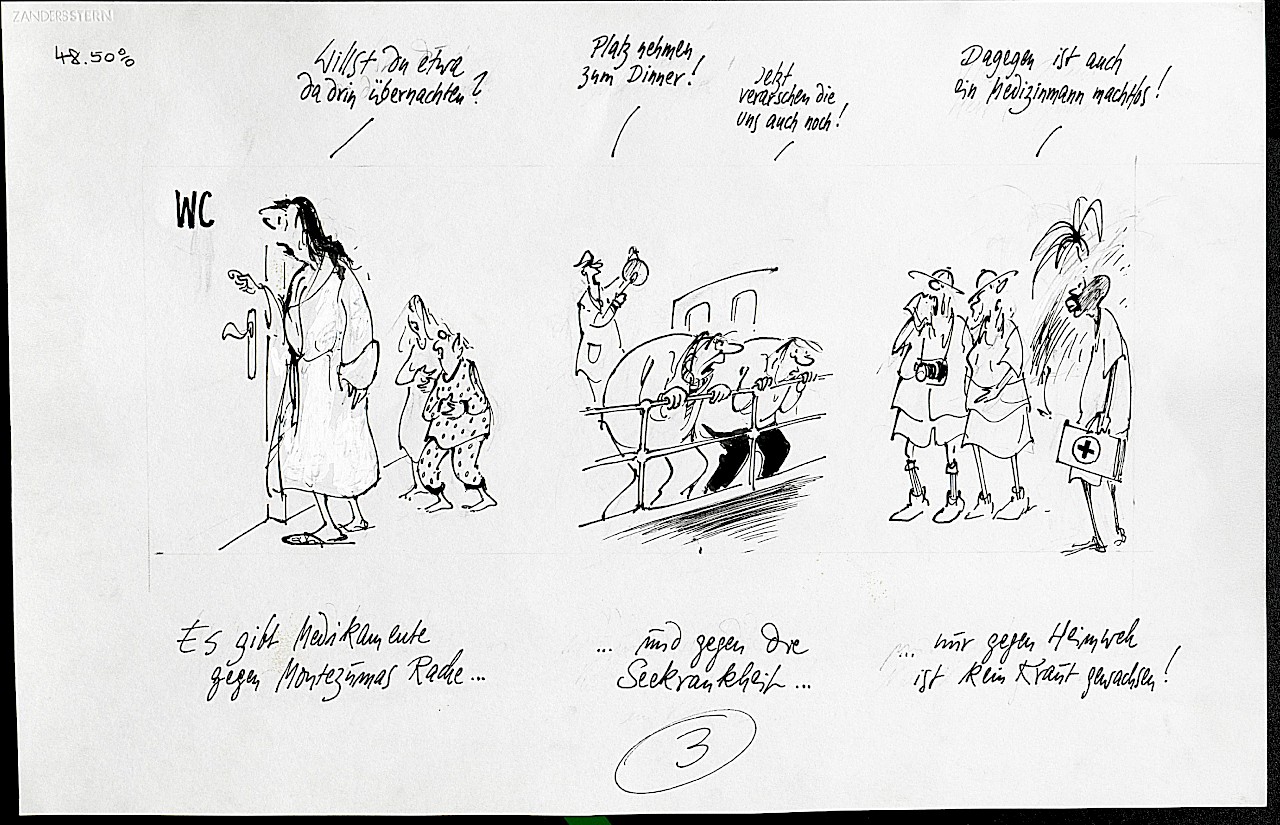 ZANDERSSTERN
48.50%
Willst du etwa
da drin übernachten?
Platz nehmen
zum Dinner!
Jetzt
verarschen die
uns auch noch!
Dagegen ist auch
ein Medizinmann machtlos!
WC
Es gibt Medikamente
gegen Montezumas Rache...
... und gegen die
Seekrankheit...
... nur gegen Heimweh
ist kein Kraut gewachsen!
3